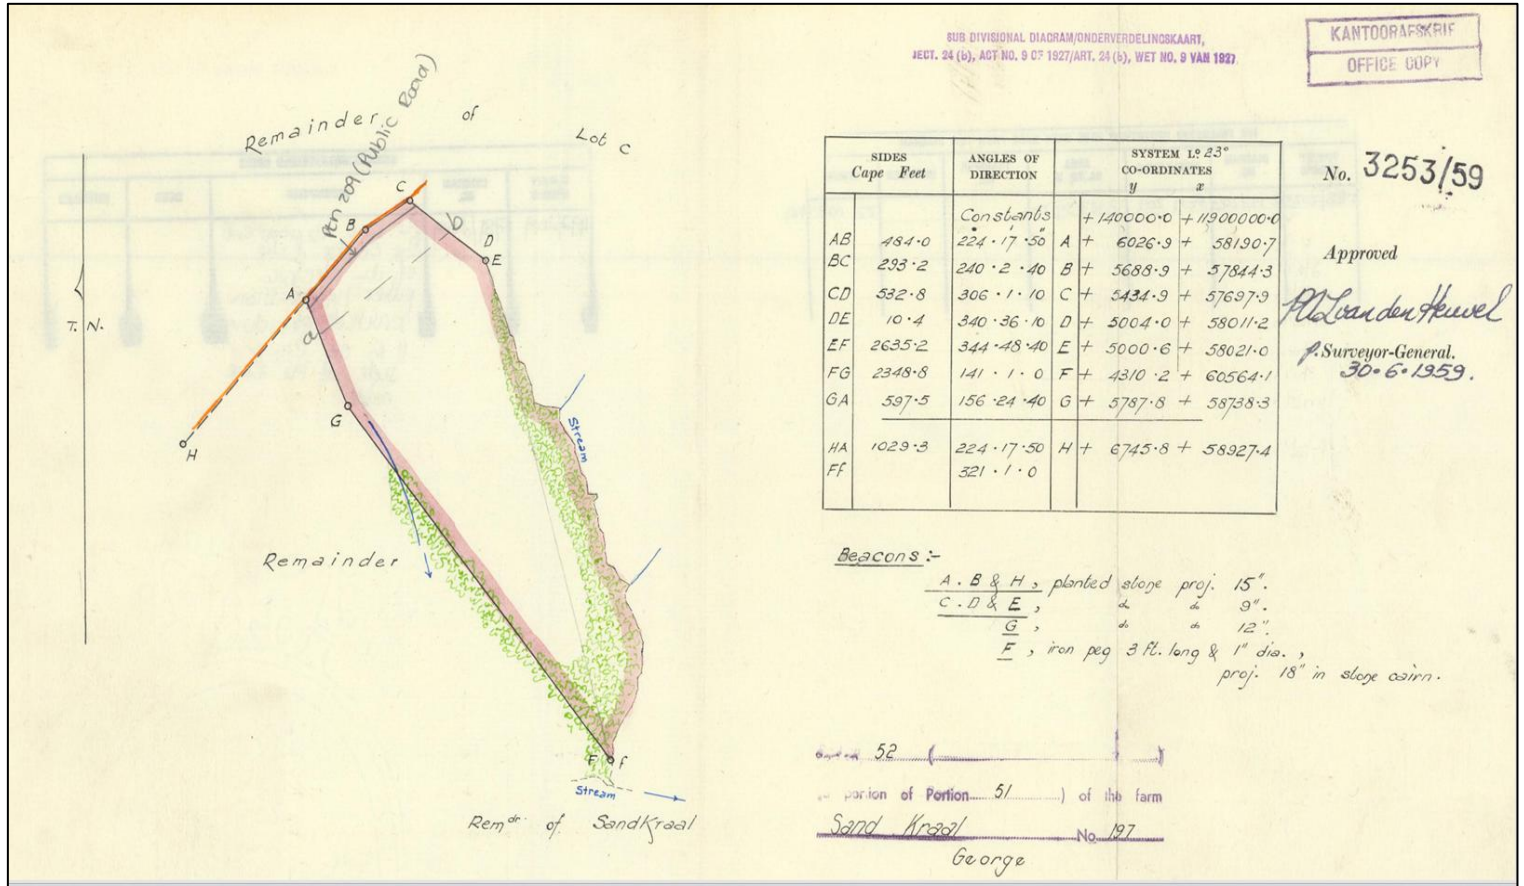 SUB DIVISIONAL DIAGRAM/ONDERVERDELINGSKAART,
SECT. 24 (b), ACT NO. 9 OF 1927/ART. 24 (b), WET NO. 9 VAN 1927
KANTOORAFSKRIF
OFFICE COPY
Remainder of Lot C
Ptn 209 (Public Road)
C
B
b
D
E
A
a
G
H
T. N.
Stream
Remainder
F f
Stream
Remdr. of Sandkraal
SIDES Cape Feet ANGLES OF DIRECTION SYSTEM Lo. 23° CO-ORDINATES y x
Constants + 140000·0 + 11900000·0
AB 484·0 224·17·50 A + 6026·9 + 58190·7
BC 293·2 240·2·40 B + 5688·9 + 57844·3
CD 532·8 306·1·10 C + 5434·9 + 57697·9
DE 10·4 340·36·10 D + 5004·0 + 58011·2
EF 2635·2 344·48·40 E + 5000·6 + 58021·0
FG 2348·8 141·1·0 F + 4310·2 + 60564·1
GA 597·5 156·24·40 G + 5787·8 + 58738·3
HA 1029·3 224·17·50 H + 6745·8 + 58927·4
Ff 321·1·0
No. 3253/59
Approved
van den Heuvel
p. Surveyor-General.
30·6·1959.
Beacons:-
A. B & H, planted stone proj. 15".
C. D & E, do do 9".
G, do do 12".
F, iron peg 3 ft. long & 1" dia.,
proj. 18" in stone cairn.
52 ( )
portion of Portion 51 ) of the farm
Sand Kraal No. 197
George